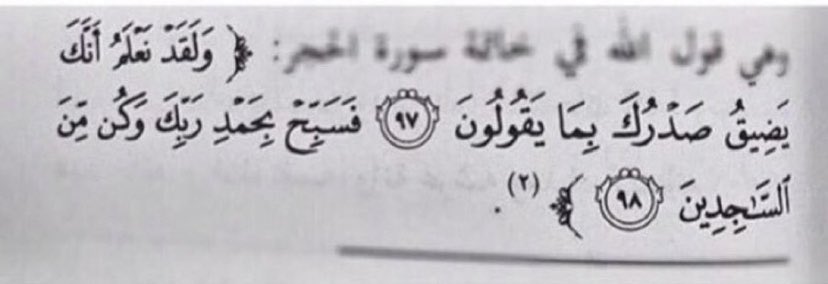 وهي قول الله في خاتمة سورة الحجر: ﴿ وَلَقَدْ نَعْلَمُ أَنَّكَ
يَضِيقُ صَدْرُكَ بِمَا يَقُولُونَ ٩٧ فَسَبِّحْ بِحَمْدِ رَبِّكَ وَكُن مِّنَ
السَّٰجِدِينَ ٩٨ ﴾ (٢).